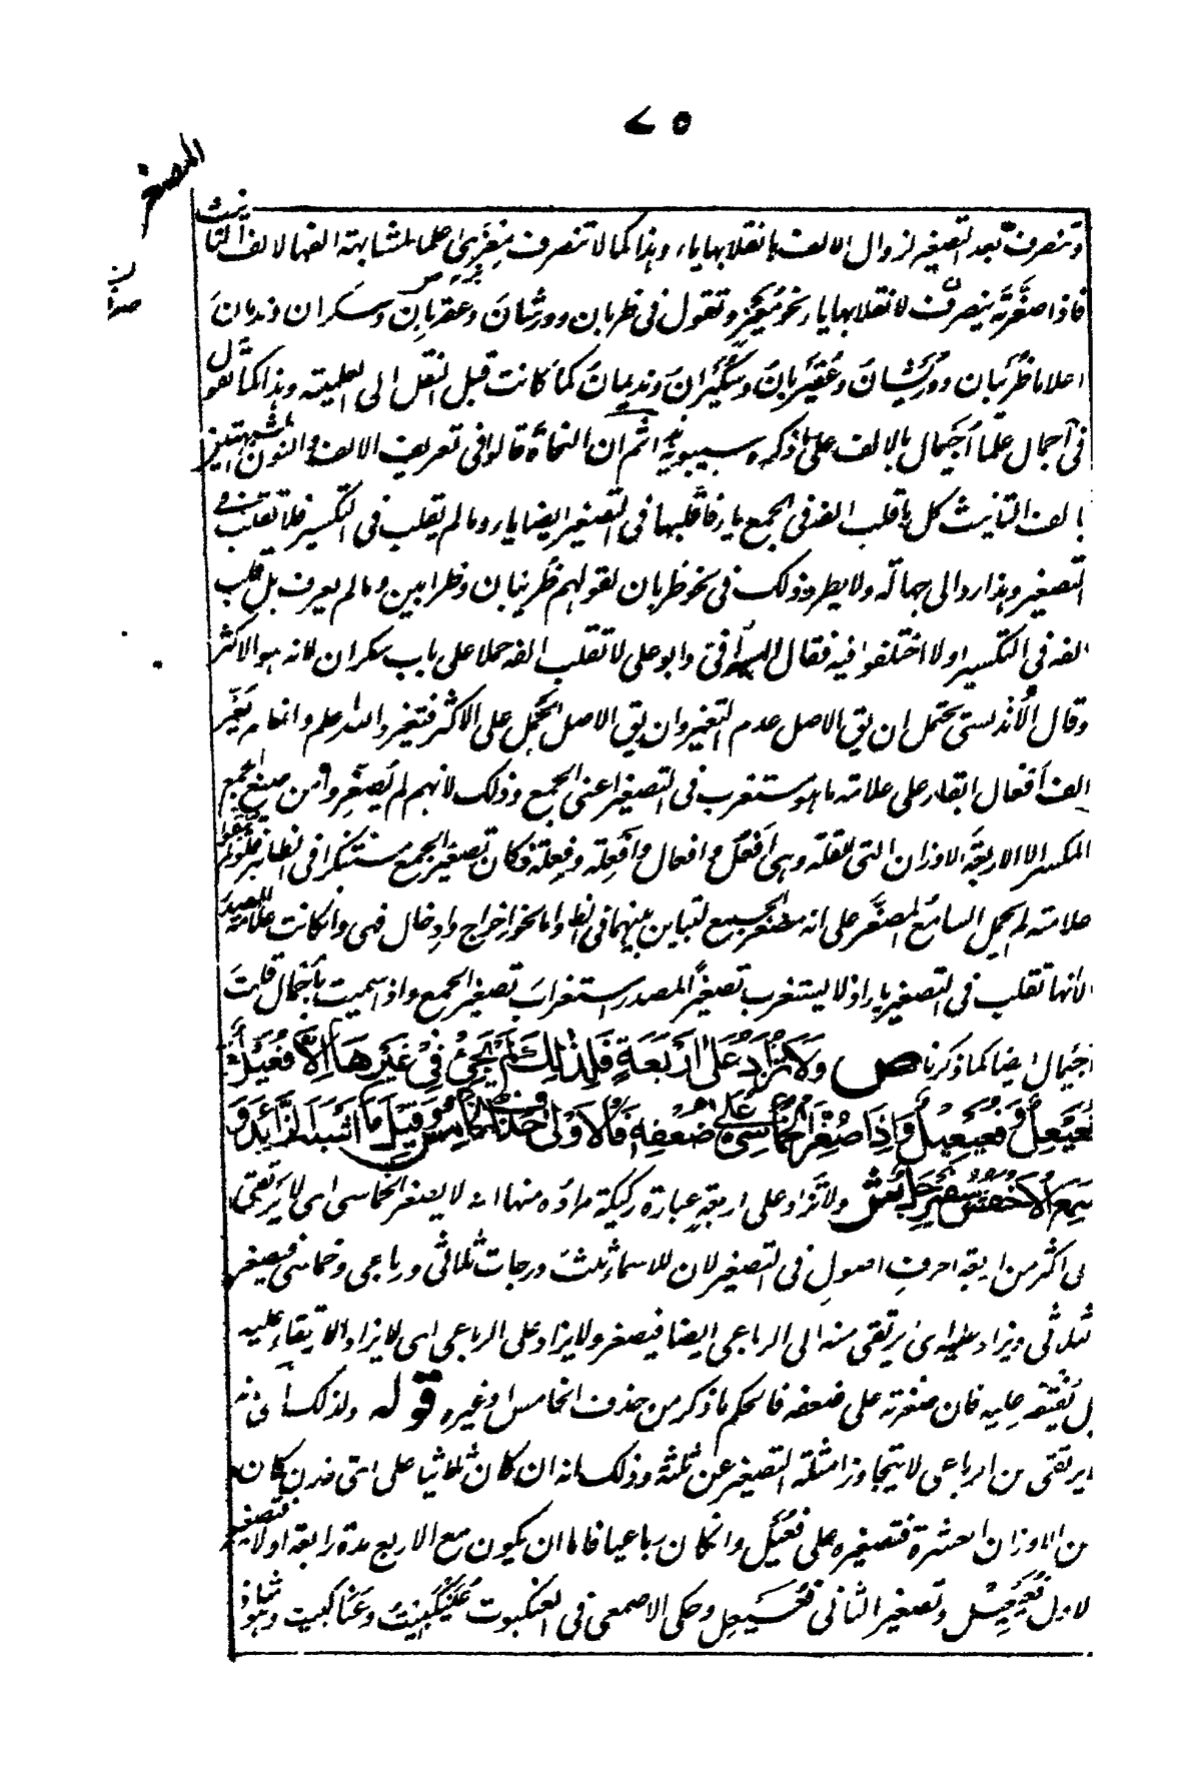 ٧٥
المصغر
وتنصرف بعد التصغير لزوال الالف بانقلابها ياء وهذا كما لا تنصرف معزى علما لمشابهة الفها لالف التانيث
فاذا صغرته ينصرف لانقلابها ياء نحو معيز وتقول فى ظربان وورشان وعقربان وسكران وندمان
اعلاما ظريبان ووريشان وعقيربان وسكيران ونديمان كما كانت قبل النقل الى العلمية وهذا كما تقول
فى اجمال علما اجيمال بالالف على ما ذكره سيبويه ثم ان النحاة قالوا فى تعريف الالف والنون المشبهتين
بالف التانيث كل ما قلب الفه فى الجمع ياء فاقلبها فى التصغير ايضا ياء وما لم يقلب فى التكسير فلا تقلب فى
التصغير وهذا رد الى جهالة ولا يطرد ذلك فى نحو ظربان لقولهم ظريبان وظرابين وما لم يعرف هل قلب
الفه فى التكسير اولا اختلفوا فيه فقال السيرافى وابو على لا تقلب الفه حملا على باب سكران لانه هو الاكثر
وقال الاندلسى يحتمل ان يق الاصل عدم التغير وان يق الاصل الحمل على الاكثر فتغير والله اعلم وانما لم يغير
الف افعال ابقاء على علامة ما هو مستغرب فى التصغير اعنى الجمع وذلك لانهم لم يصغروا من صيغ الجمع
المكسر الا الاربعة الاوزان التى للقلة وهى افعل وافعال وافعلة وفعلة فكان تصغير الجمع مستنكرا فى الظاهر فلو لم يبقوا
علامته لم يحمل السامع المصغر على انه مصغر الجمع لتباين بينهما فى الظ واما نحو اخراج وادخال فهى وان كانت علامة المصدر
لانها تقلب فى التصغير ياء اذ لا يستغرب تصغير المصدر استغراب تصغير الجمع واذا سميت باجمال قلت
اجيمال ايضا كما ذكرنا ص ولا يزاد على اربعة فلذلك لم يجئ فى غيرها الا فعيل
فعيعل وفعيعيل واذا صغر الخماسى على ضعفه فالاولى حذف الخامس وقيل ما اشبه الزائد و
سمع الاخفش سفيرجل ش ولا تزاد على اربعة عبارة ركيكة مراده منها انه لا يصغر الخماسى اى لا يرتقى
الى اكثر من اربعة احرف اصول فى التصغير لان للاسماء ثلث درجات ثلاثى ورباعى وخماسى فيصغر
الثلاثى ويزاد عليه اى يرتقى منه الى الرباعى ايضا فيصغر ولا يزاد على الرباعى اى لا يزاد الارتقاء عليه
بل يقتصر عليه فان صغرته على ضعفه فالحكم ما ذكر من حذف الخامس او غيره قوله ولذلك اى لانه
لم يرتقى من الرباعى لا يتجاوز امثلة التصغير عن ثلثة وذلك انه ان كان ثلاثيا على اى وزن كان
من الاوزان العشرة فتصغيره على فعيل وان كان رباعيا فاما ان يكون مع الاربع مدة رابعة اولا فتصغير
الاول فعيعيل وتصغير الثانى فعيعل وحكى الاصمعى فى العنكبوت عنيكبيت وعناكبيت وهو شاذ